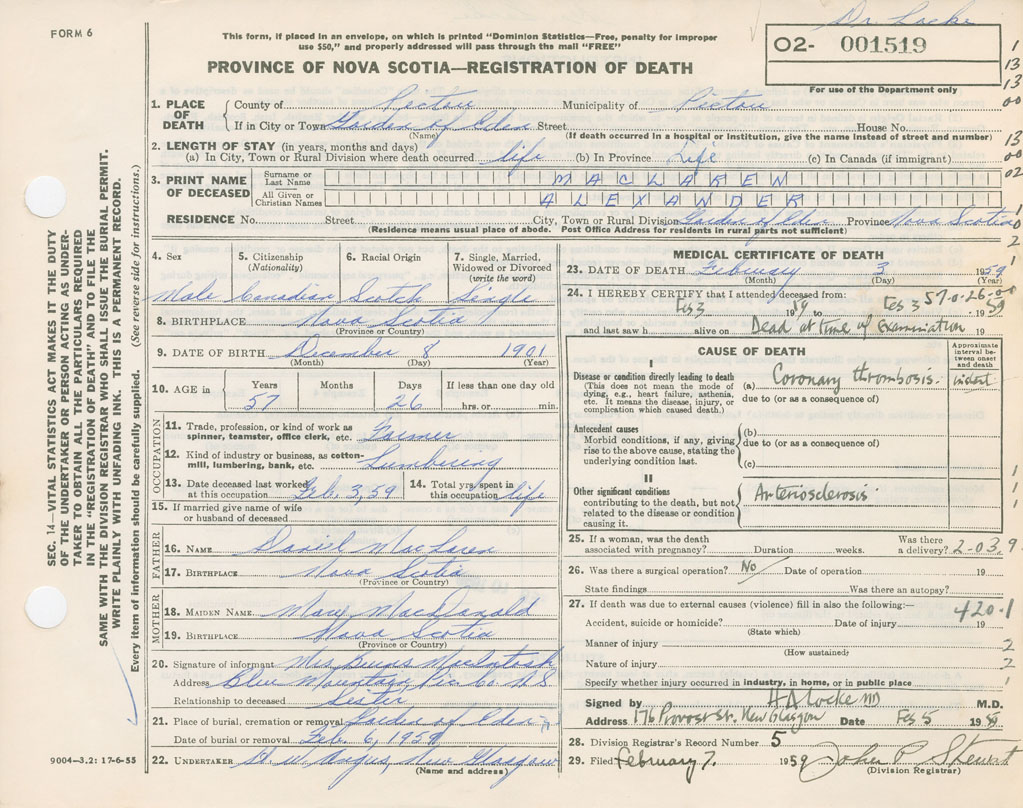 Dr. Locke
FORM 6
This form, if placed in an envelope, on which is printed "Dominion Statistics—Free, penalty for improper
use $50," and properly addressed will pass through the mail "FREE"
O2- 001519
PROVINCE OF NOVA SCOTIA—REGISTRATION OF DEATH
For use of the Department only
1. PLACE OF DEATH
County of Pictou Municipality of Pictou
If in City or Town Garden of Eden Street House No.
(Name) (If death occurred in a hospital or institution, give the name instead of street and number)
2. LENGTH OF STAY (in years, months and days)
(a) In City, Town or Rural Division where death occurred life (b) In Province Life (c) In Canada (if immigrant)
3. PRINT NAME OF DECEASED
Surname or Last Name MACLAREN
All Given or Christian Names ALEXANDER
RESIDENCE No. Street City, Town or Rural Division Garden of Eden Province Nova Scotia
(Residence means usual place of abode. Post Office Address for residents in rural parts not sufficient)
4. Sex 5. Citizenship (Nationality) 6. Racial Origin 7. Single, Married, Widowed or Divorced (write the word)
Male Canadian Scotch Single
8. BIRTHPLACE Nova Scotia
(Province or Country)
9. DATE OF BIRTH December 8 1901
(Month) (Day) (Year)
10. AGE in Years Months Days If less than one day old
57 26 hrs. or min.
OCCUPATION
11. Trade, profession, or kind of work as
spinner, teamster, office clerk, etc. Farmer
12. Kind of industry or business, as cotton-
mill, lumbering, bank, etc. Lumbering
13. Date deceased last worked at this occupation Feb. 3, 59 14. Total yrs. spent in this occupation life
15. If married give name of wife
or husband of deceased
FATHER
16. NAME Daniel MacLaren
17. BIRTHPLACE Nova Scotia
(Province or Country)
MOTHER
18. MAIDEN NAME Mary MacDonald
19. BIRTHPLACE Nova Scotia
(Province or Country)
20. Signature of informant Mrs MacIntosh
Address Blue Mountain, Pic. Co. N.S.
Relationship to deceased Sister
21. Place of burial, cremation or removal Garden of Eden
Date of burial or removal Feb. 6, 1959
22. UNDERTAKER New Glasgow
(Name and address)
MEDICAL CERTIFICATE OF DEATH
23. DATE OF DEATH February 3 1959
(Month) (Day) (Year)
57-0-26-00
24. I HEREBY CERTIFY that I attended deceased from:
Feb 3 1959 to Feb 3 1959
and last saw h alive on Dead at time of Examination 19
CAUSE OF DEATH
Approximate interval between onset and death
I
Disease or condition directly leading to death
(This does not mean the mode of
dying, e.g., heart failure, asthenia,
etc. It means the disease, injury, or
complication which caused death.)
(a) Coronary thrombosis.
due to (or as a consequence of)
Antecedent causes
Morbid conditions, if any, giving
rise to the above cause, stating the
underlying condition last.
(b)
due to (or as a consequence of)
(c)
II
Other significant conditions
contributing to the death, but not
related to the disease or condition
causing it.
Arteriosclerosis
25. If a woman, was the death
associated with pregnancy? Duration weeks. Was there a delivery? 2-03.9
26. Was there a surgical operation? No Date of operation 19
State findings Was there an autopsy?
27. If death was due to external causes (violence) fill in also the following:—
420.1
Accident, suicide or homicide? Date of injury 19
(State which)
Manner of injury
(How sustained)
Nature of injury
Specify whether injury occurred in industry, in home, or in public place
Signed by H A Locke MD M.D.
Address 176 Provost St. New Glasgow Date Feb 5 19
28. Division Registrar's Record Number 5
29. Filed February 7. 1959 John P Stewart
(Division Registrar)
SEC. 14—VITAL STATISTICS ACT MAKES IT THE DUTY
OF THE UNDERTAKER OR PERSON ACTING AS UNDER-
TAKER TO OBTAIN ALL THE PARTICULARS REQUIRED
IN THE "REGISTRATION OF DEATH" AND TO FILE THE
SAME WITH THE DIVISION REGISTRAR WHO SHALL ISSUE THE BURIAL PERMIT.
WRITE PLAINLY WITH UNFADING INK. THIS IS A PERMANENT RECORD.
Every item of information should be carefully supplied. (See reverse side for instructions.)
9004-3.2: 17-6-55
1
13
13
00
13
00
02
1
0
2
1
1
1
1
2
2
1